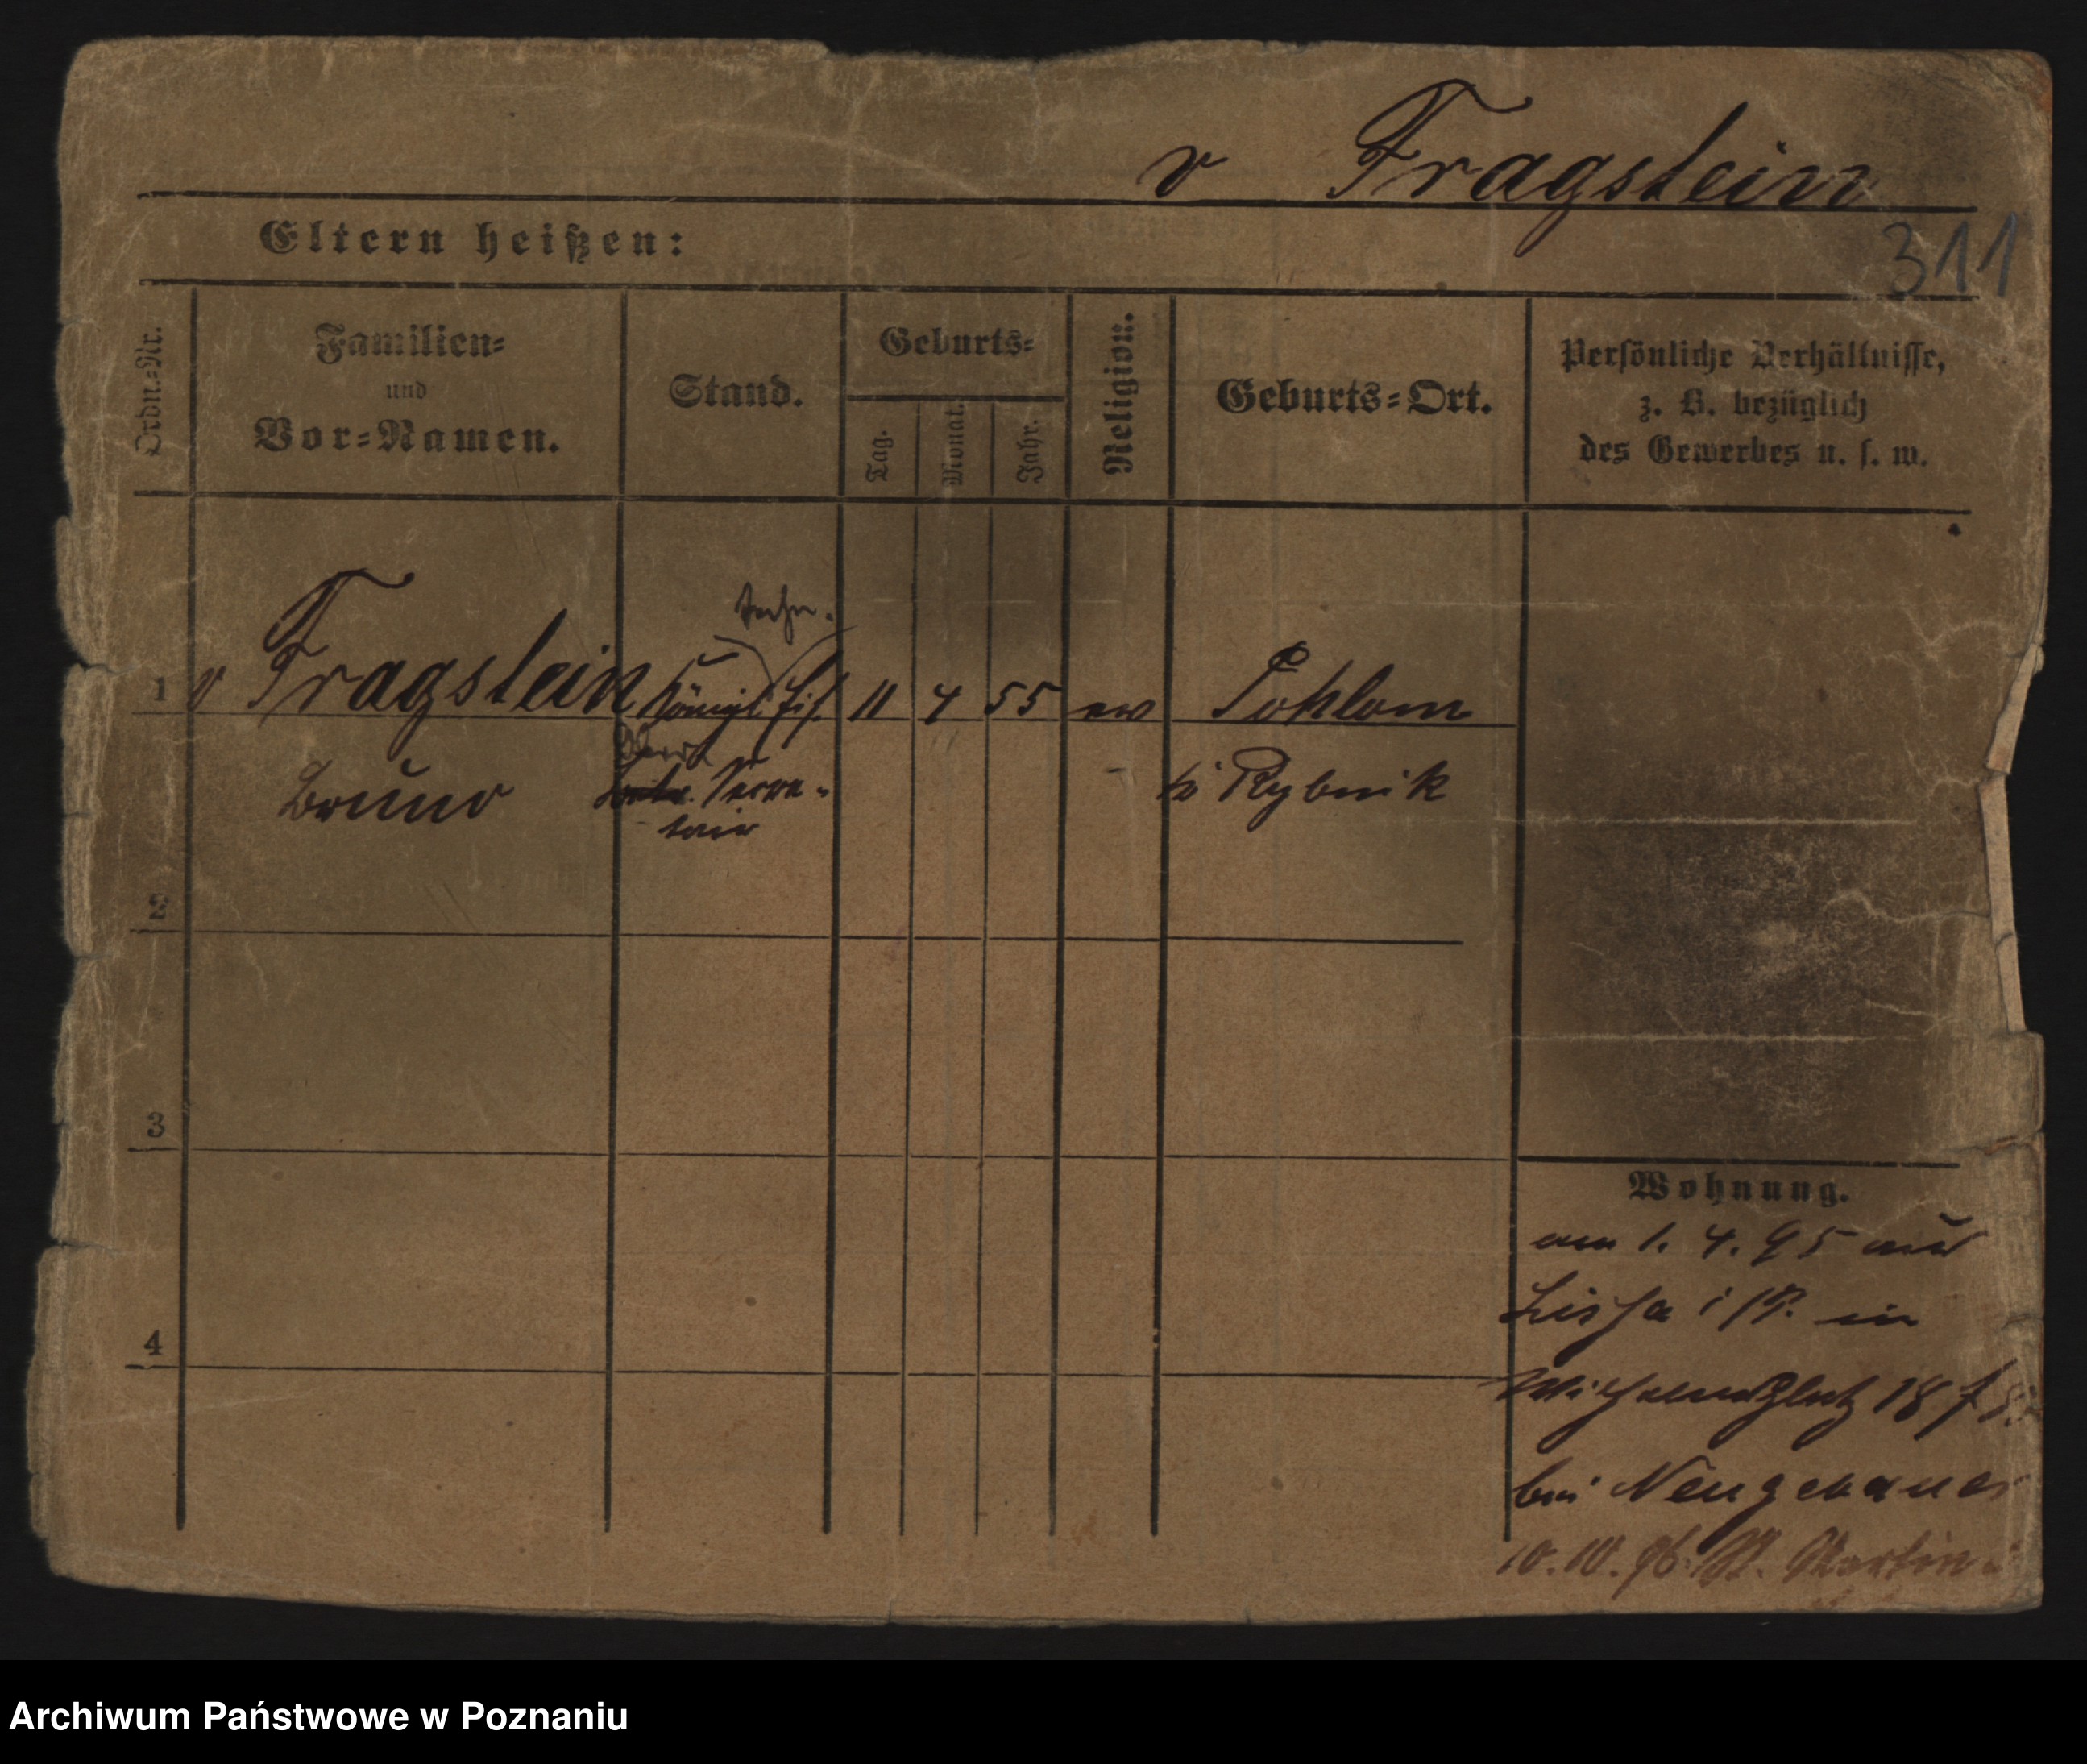 v Fragstein
311
Eltern heißen:
Ordn.-Nr.
Familien-
und
Vor-Namen.
Stand.
Geburts-
Tag.
Monat.
Jahr.
Religion.
Geburts-Ort.
Persönliche Verhältnisse,
z. B. bezüglich
des Gewerbes u. s. w.
techn.
1 v Fragstein Königl. Eis. 11 4 55 ev Pohlom
Bruno
tair
b Rybnik
2
3
4
Wohnung.
am 1. 4. 95 aus
Lissa i/P. in
Wilhelmsplatz 18
bei Neugebauer
10. 10. 96. St. Martin
Archiwum Państwowe w Poznaniu